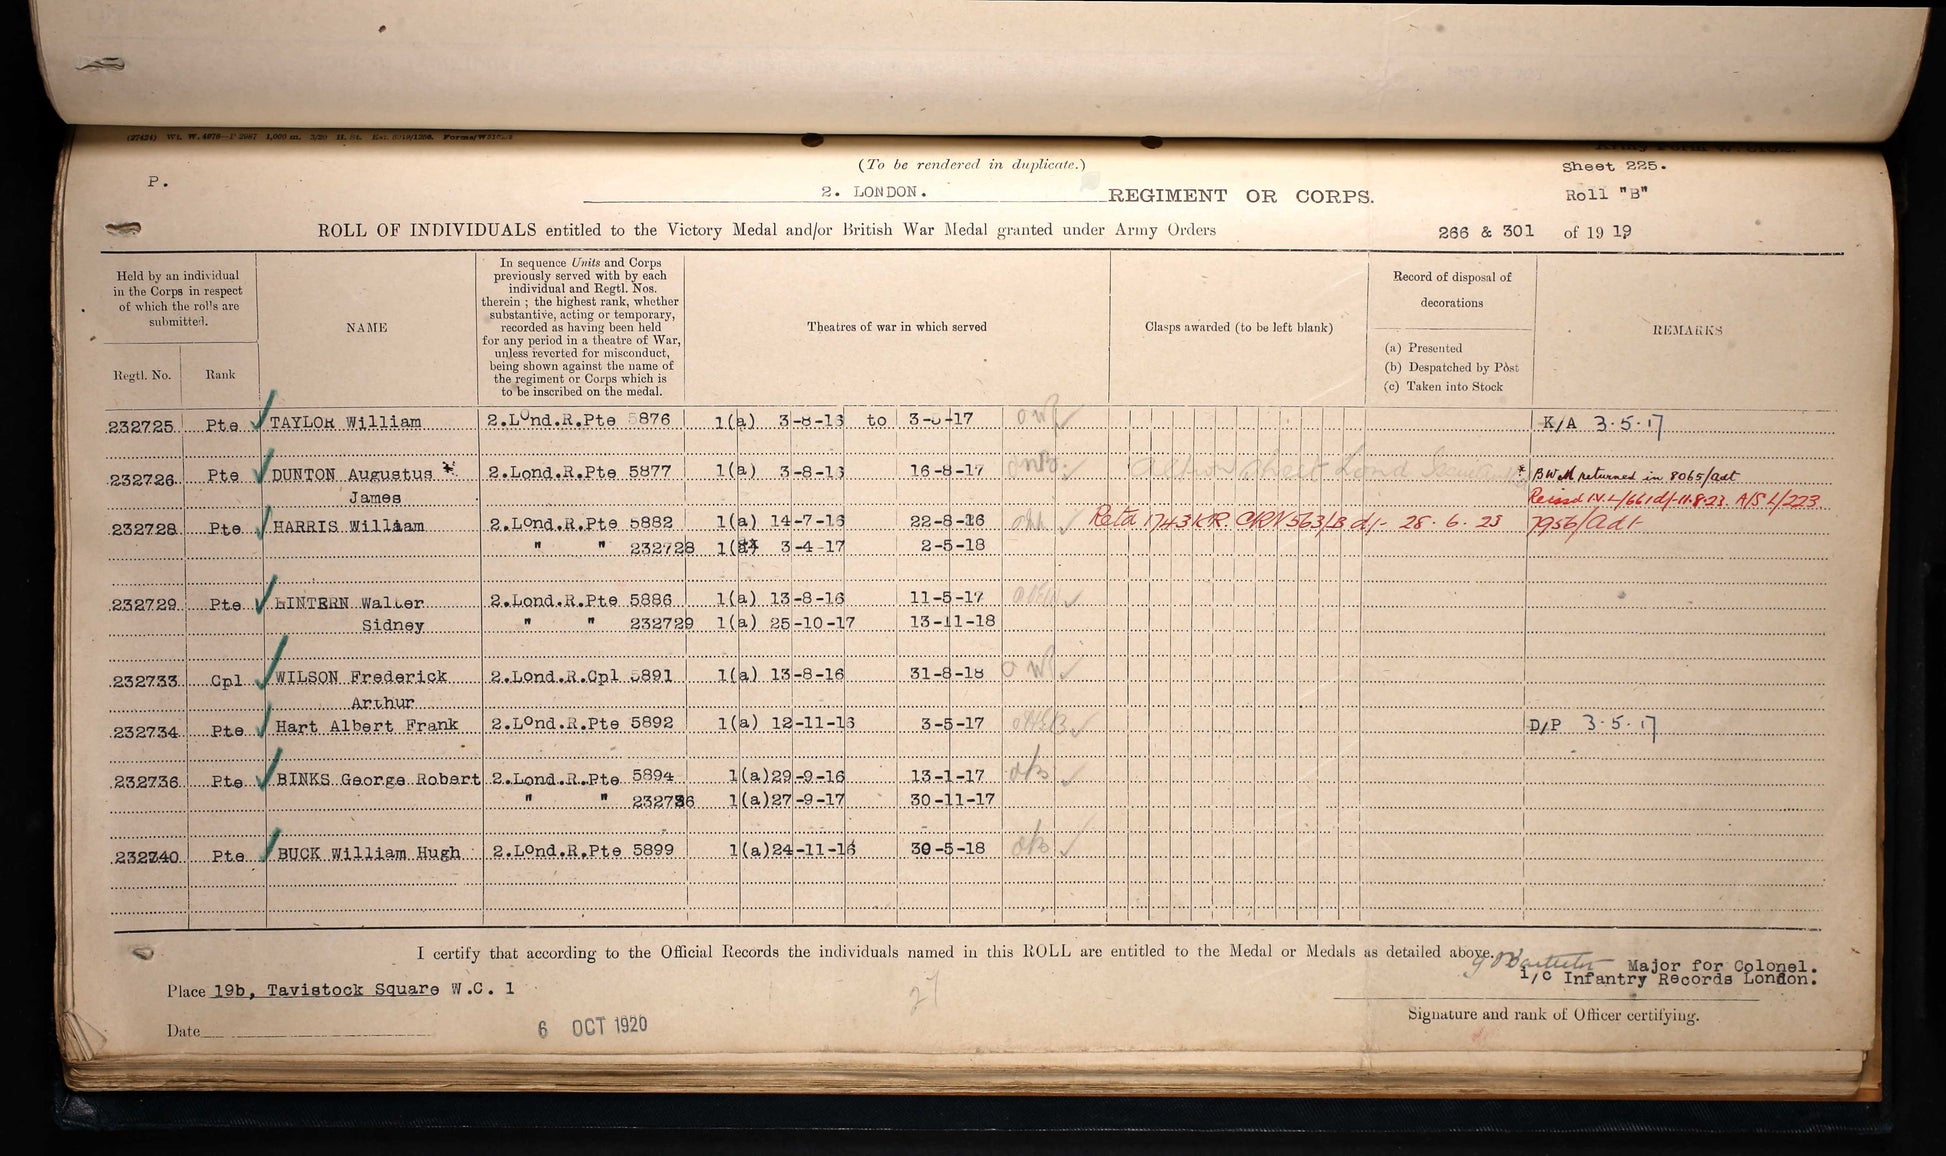 (To be rendered in duplicate.)
Sheet 225.
P.
2. LONDON. REGIMENT OR CORPS.
Roll "B"
ROLL OF INDIVIDUALS entitled to the Victory Medal and/or British War Medal granted under Army Orders 266 & 301 of 19 19
Held by an individual
in the Corps in respect
of which the rolls are
submitted.
Regtl. No. Rank
NAME
In sequence Units and Corps
previously served with by each
individual and Regtl. Nos.
therein ; the highest rank, whether
substantive, acting or temporary,
recorded as having been held
for any period in a theatre of War,
unless reverted for misconduct,
being shown against the name of
the regiment or Corps which is
to be inscribed on the medal.
Theatres of war in which served
Clasps awarded (to be left blank)
Record of disposal of
decorations
(a) Presented
(b) Despatched by Post
(c) Taken into Stock
REMARKS
232725 Pte TAYLOR William 2.Lond.R.Pte 5876 1(a) 3-8-16 to 17 K/A 3.5.17
232726 Pte DUNTON Augustus * 2.Lond.R.Pte 5877 1(a) 3-8-16 16-8-17 * BWM returned in 8065/adt
James
232728 Pte HARRIS William 2.Lond.R.Pte 5882 1(a) 14-7-16 22-8-16 28.6.23 7956/Adt
" " 232728 1(a) 3-4-17 2-5-18
232729 Pte HINTERN Walter 2.Lond.R.Pte 5886 1(a) 13-8-16 11-5-17
Sidney " " 232729 1(a) 25-10-17 13-11-18
232733 Cpl WILSON Frederick 2.Lond.R.Cpl 5891 1(a) 13-8-16 31-8-18
Arthur
232734 Pte Hart Albert Frank 2.Lond.R.Pte 5892 1(a) 12-11-16 3-5-17 D/P 3.5.17
232736 Pte BINKS George Robert 2.Lond.R.Pte 5894 1(a)29-9-16 13-1-17
" " 232736 1(a)27-9-17 30-11-17
232740 Pte BUCK William Hugh 2.Lond.R.Pte 5899 1(a)24-11-16 30-5-18
I certify that according to the Official Records the individuals named in this ROLL are entitled to the Medal or Medals as detailed above.
Major for Colonel.
i/c Infantry Records London.
Place 19b, Tavistock Square W.C. 1
27
Signature and rank of Officer certifying.
Date 6 OCT 1920